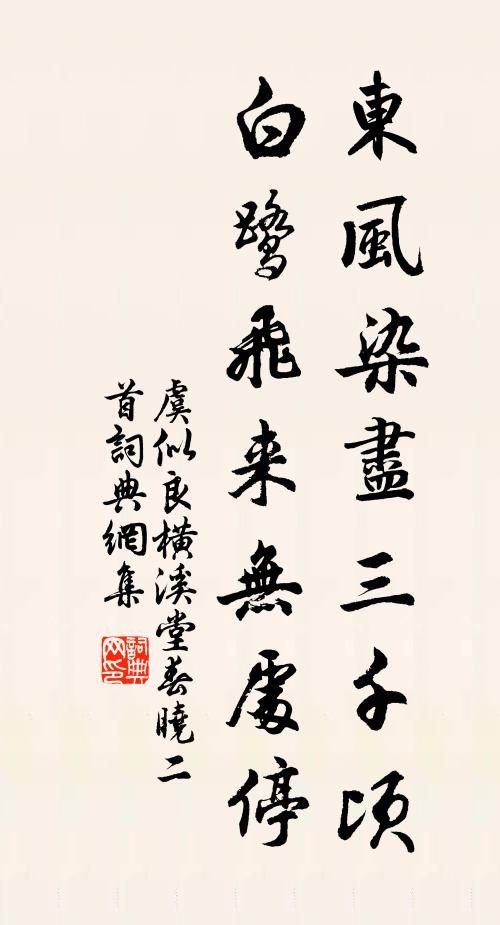 東風染盡三千頃
白鷺飛来無處停
虞似良橫溪堂春曉二
首詞典網集
詞典網印